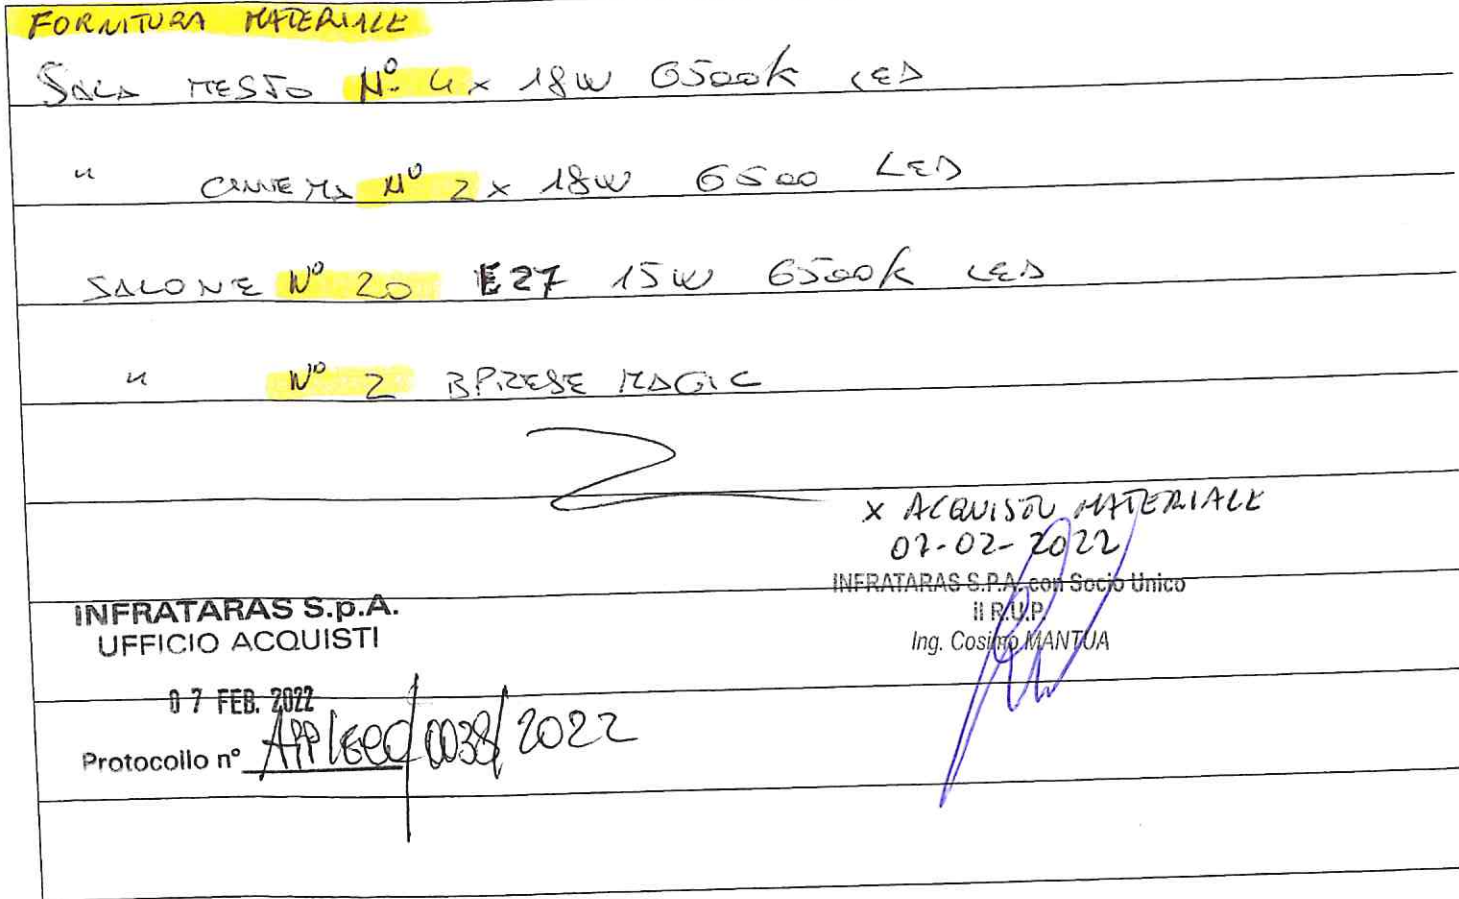 FORNITURA MATERIALE
SALA MESTO N° 4 x 18W 6500K LED
" CINEMA N° 2 x 18W 6500 LED
SALONE N° 20 E27 15W 6500K LED
" N° 2 BPRESE MAGIC
x ACQUISTO MATERIALE
07-02-2022
INFRATARAS S.P.A. con Socio Unico
il R.U.P.
Ing. Cosimo MANTUA
INFRATARAS S.p.A.
UFFICIO ACQUISTI
07 FEB. 2022
Protocollo n° /0038/2022